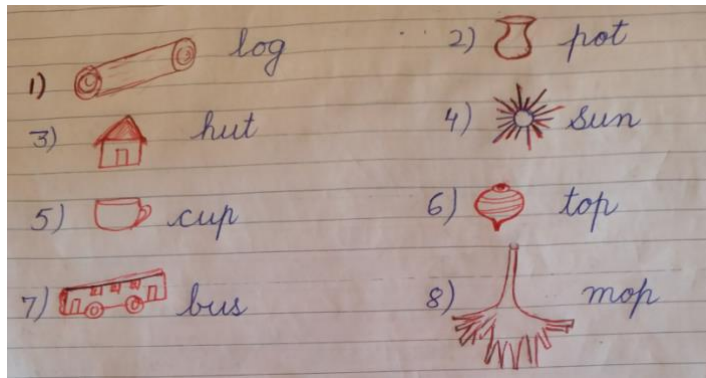 1) log
2) pot
3) hut
4) sun
5) cup
6) top
7) bus
8) mop